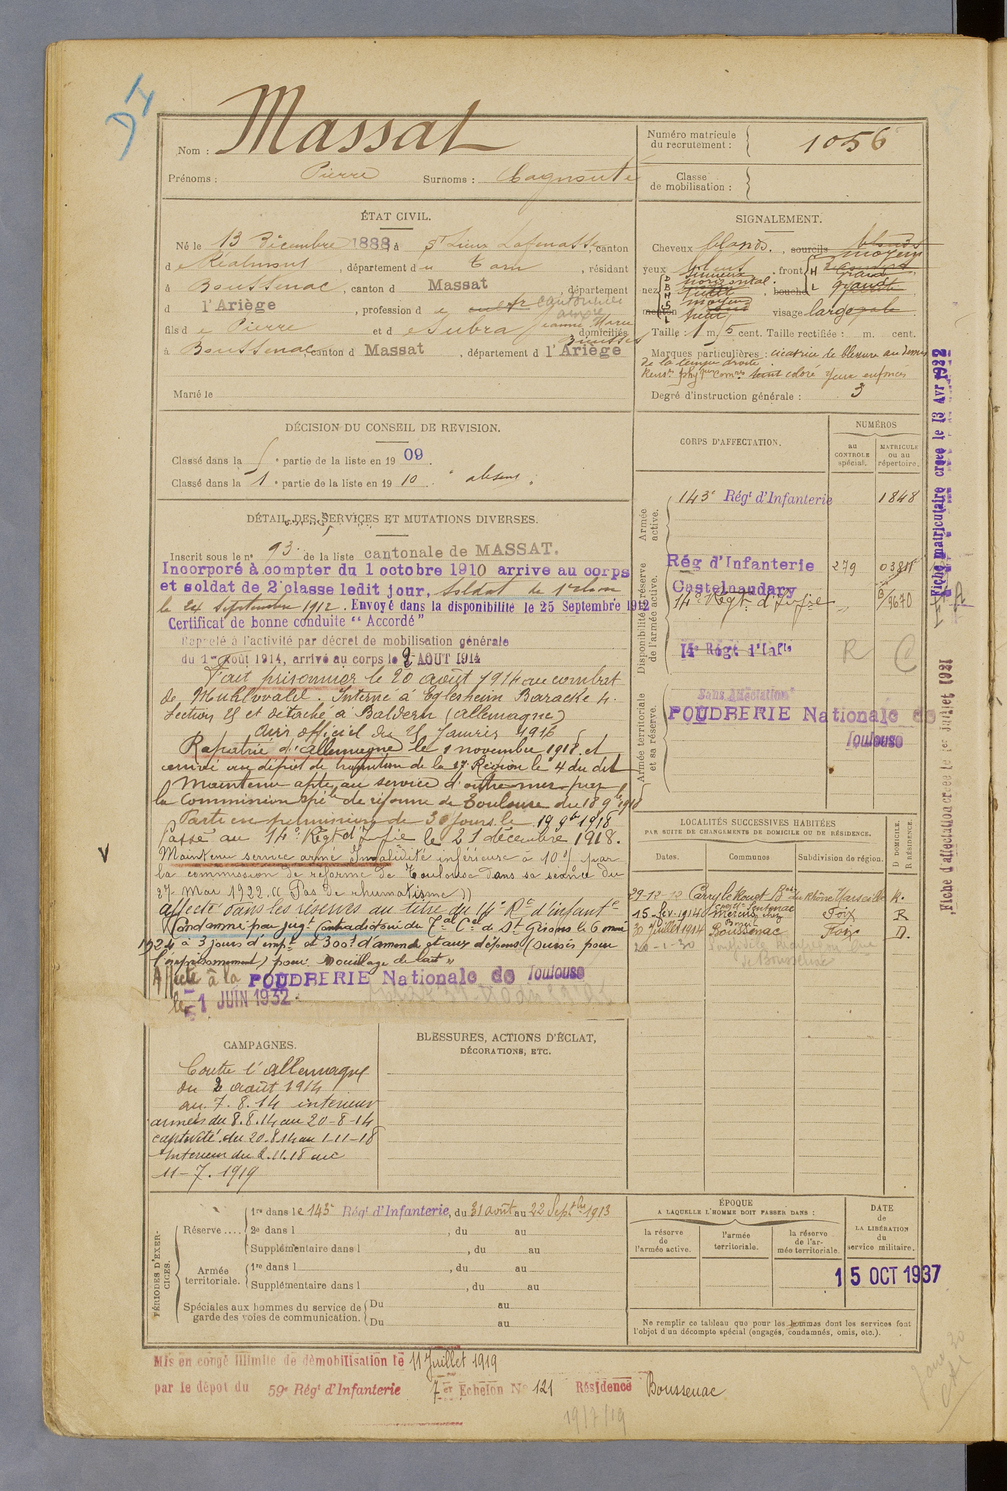 Nom : Massat
Prénoms : Pierre Surnoms :
Numéro matricule du recrutement : 1056
Classe de mobilisation :
ÉTAT CIVIL.
Né le 13 Décembre 1888 à St Lieux Lafenasse, canton
de Réalmont, département du Tarn, résidant
à Boussenac, canton d Massat, département
d l'Ariège, profession de cult cantonnier
fils de Pierre et de Subra Jeanne Marie domiciliés
à Boussenac canton d Massat, département d l'Ariège
Marié le
SIGNALEMENT.
Cheveux blonds. sourcils blonds
yeux bleus, front moyen
nez, bouche grande
menton visage large ovale
Taille : 1 m. cent. Taille rectifiée : m. cent.
Marques particulières : cicatrice de blessure au
Degré d'instruction générale : 3
DÉCISION DU CONSEIL DE REVISION.
Classé dans la e partie de la liste en 1909.
Classé dans la 1e partie de la liste en 1910. absent.
DÉTAIL DES SERVICES ET MUTATIONS DIVERSES.
Inscrit sous le n° 93 de la liste cantonale de MASSAT.
Incorporé à compter du 1 octobre 1910 arrivé au corps
et soldat de 2e classe ledit jour, Soldat de 1re classe
le 24 Septembre 1912. Envoyé dans la disponibilité le 25 Septembre 1912
Certificat de bonne conduite "Accordé"
Rappelé à l'activité par décret de mobilisation générale
du 1er Août 1914, arrivé au corps le 2 AOUT 1914
Fait prisonnier le 20 août 1914 au combat
de. Interné à Eglosheim Baracke 4.
Section et détaché à Baldern (Allemagne)
avis officiel du Janvier 1916
Rapatrié d'Allemagne le 1 novembre 1918 et
arrivé au dépôt de transition de la 17e Région le 4 du dit
Maintenu apte au service d'outre mer par
la Commission spéle de réforme de Toulouse du 18 9bre 1918
Parti en permission de 30 jours le 19 9bre 1918
Passé au 14e Régt d'Infie le 21 décembre 1918.
Maintenu service armé Invalidité inférieure à 10% par
la commission de réforme de Toulouse dans sa séance du
27 Mai 1922. (( Pas de rhumatisme ))
affecté dans les réserves au titre du 14e Rt d'infante
Condamné par jugt contradictoire du Tal Cel de St Girons le 6 mai
1924 à 3 jours d'empt et 300f d'amende et aux dépens (sursis pour
l'emprisonnement) pour mouillage de lait"
Affecté à la POUDRERIE Nationale de Toulouse
le 1 JUIN 1932.
CORPS D'AFFECTATION.
NUMÉROS
au CONTROLE spécial.
MATRICULE ou au répertoire.
Armée active.
143e Régt d'Infanterie 1848
Disponibilité et réserve de l'armée active.
Rég d'Infanterie 279
Castelnaudary
14e Régt d'Infie
14e Régt d'Infie R
Armée territoriale et sa réserve.
Sans Affectation
POUDRERIE Nationale de
Toulouse
Fiche matriculaire créée le 13 Avr 1932
Fiche d'affectation créée le 1er Juillet 1921
LOCALITÉS SUCCESSIVES HABITÉES
PAR SUITE DE CHANGEMENTS DE DOMICILE OU DE RÉSIDENCE.
Dates. Communes Subdivision de région. D DOMICILE. R RÉSIDENCE.
29-12-12 Carry le Rouet Marseille R.
15 Fév. 1914 Foix R
30 Juillet 1914 Boussenac Foix D.
26-1-30
de Boussenac
CAMPAGNES.
Contre l'Allemagne
du 2 août 1914
au 7.8.14 intérieur
armées du 8.8.14 au 20-8-14
captivité du 20.8.14 au 1-11-18
Intérieur du 2.11.18 au
11-7.1919
BLESSURES, ACTIONS D'ÉCLAT,
DÉCORATIONS, ETC.
PÉRIODES D'EXERCICES.
Réserve....
1re dans le 143e Régt d'Infanterie, du 31 août au 22 Septbre 1913
2e dans l , du au
Supplémentaire dans l , du au
Armée territoriale.
1re dans l , du au
Supplémentaire dans l , du au
Spéciales aux hommes du service de garde des voies de communication.
Du au
Du au
ÉPOQUE
A LAQUELLE L'HOMME DOIT PASSER DANS :
la réserve de l'armée active.
l'armée territoriale.
la réserve de l'armée territoriale.
DATE de LA LIBÉRATION du service militaire.
15 OCT 1937
Ne remplir ce tableau que pour les hommes dont les services font
l'objet d'un décompte spécial (engagés, condamnés, omis, etc.).
Mis en congé illimité de démobilisation le 11 Juillet 1919
par le dépôt du 59e Régt d'Infanterie 7e Echelon No 121 Résidence Boussenac
19/7/19